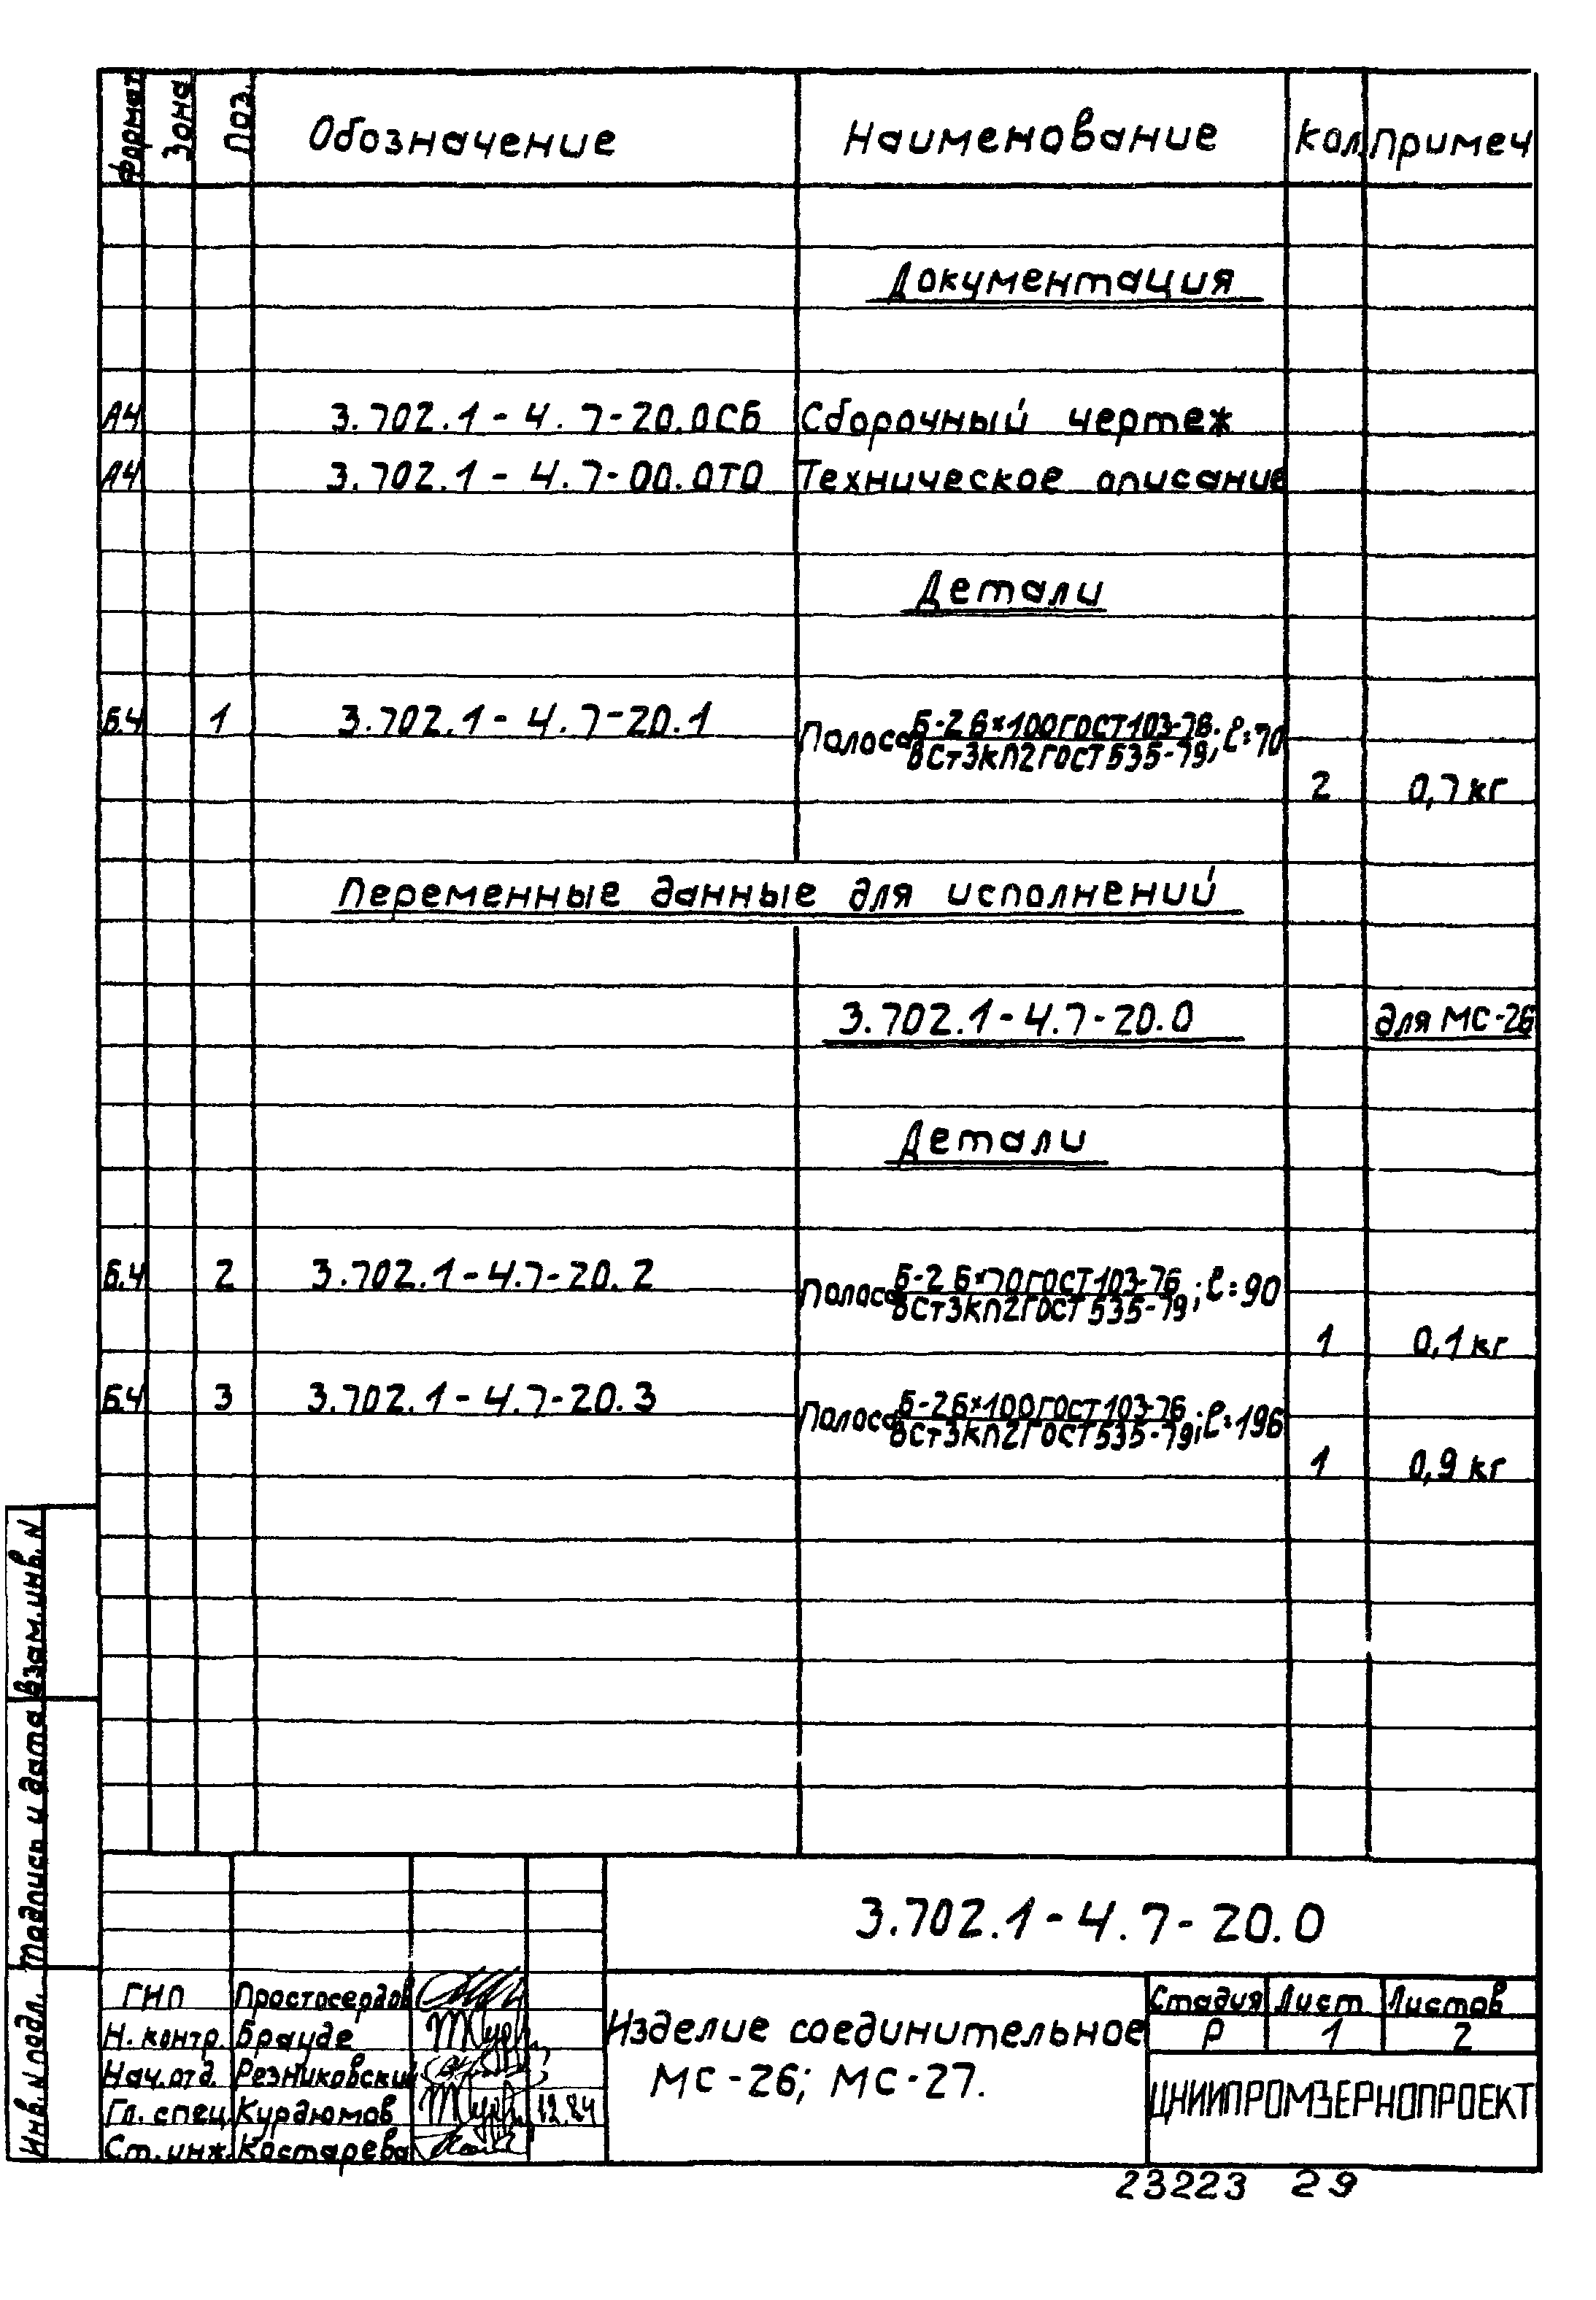 Формат Зона Поз. Обозначение Наименование Кол. Примеч
Документация
А4 3.702.1-4.7-20.0СБ Сборочный чертеж
А4 3.702.1-4.7-00.0ТО Техническое описание
Детали
Б.Ч 1 3.702.1-4.7-20.1 Полоса Б-2 6×100 ГОСТ 103-76 ; ℓ=70
ВСт3кп2 ГОСТ 535-79
2 0,7 кг
Переменные данные для исполнений
3.702.1-4.7-20.0 для МС-26
Детали
Б.Ч 2 3.702.1-4.7-20.2 Полоса Б-2 6×70 ГОСТ 103-76 ; ℓ=90
ВСт3кп2 ГОСТ 535-79
1 0,1 кг
Б.Ч 3 3.702.1-4.7-20.3 Полоса Б-2 6×100 ГОСТ 103-76 ; ℓ=196
ВСт3кп2 ГОСТ 535-79
1 0,9 кг
Взам.инв.N
Подпись и дата
Инв.N подл.
3.702.1-4.7-20.0
ГИП Простосердов
Н.контр. Брауде
Нач.отд. Резниковский
Гл. спец. Курдюмов 12.84
Ст.инж. Костарева
Изделие соединительное
МС-26; МС-27.
Стадия Лист Листов
Р 1 2
ЦНИИПРОМЗЕРНОПРОЕКТ
23223 29